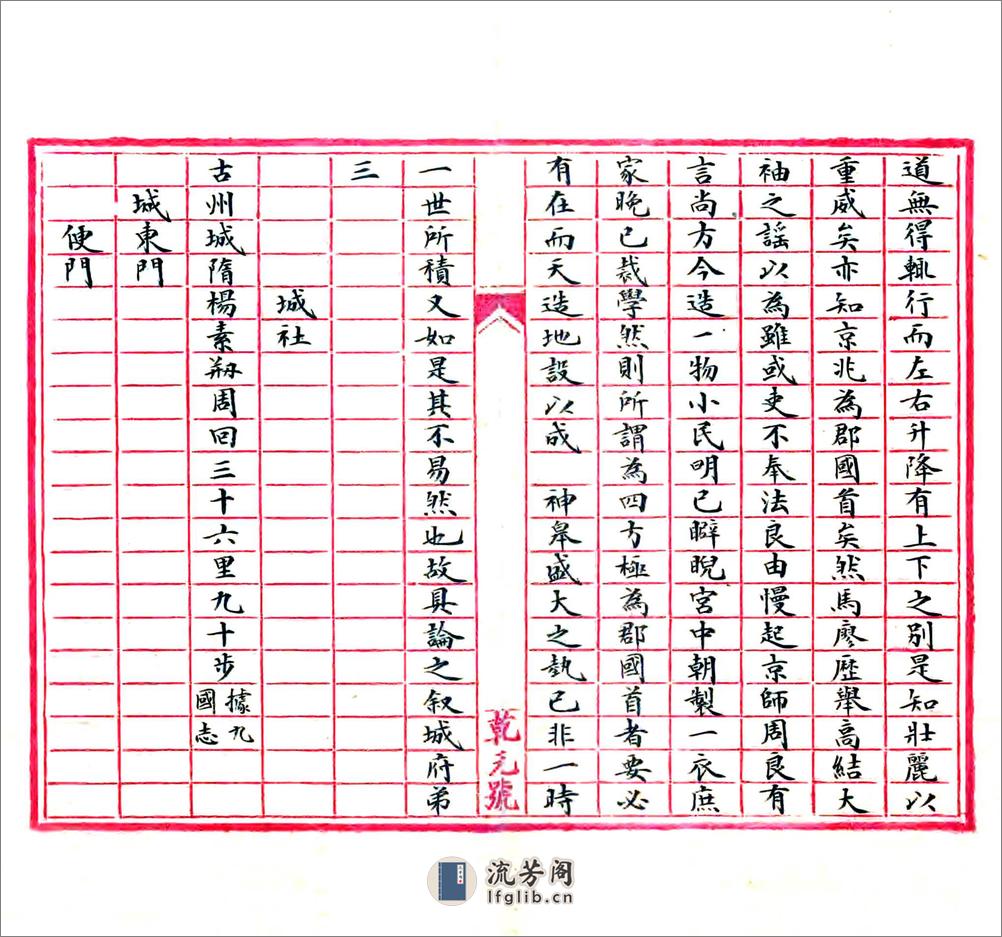 道無得輒行而左右升降有上下之別是知壯麗以
重威矣亦知京兆為郡國首矣然馬廖歷舉高結大
袖之謡以為雖或吏不奉法良由慢起京師周良有
言尚方今造一物小民明已睥睨宮中朝製一衣庶
家晚已裁學然則所謂為四方極為郡國首者要必
有在而天造地設以成 神皋盛大之埶已非一時
乾元號
一世所積又如是其不易然也故具論之叙城府弟
三
城社
古州城隋楊素剏周回三十六里九十步據九國志
城東門
便門
流芳阁
lfglib.cn